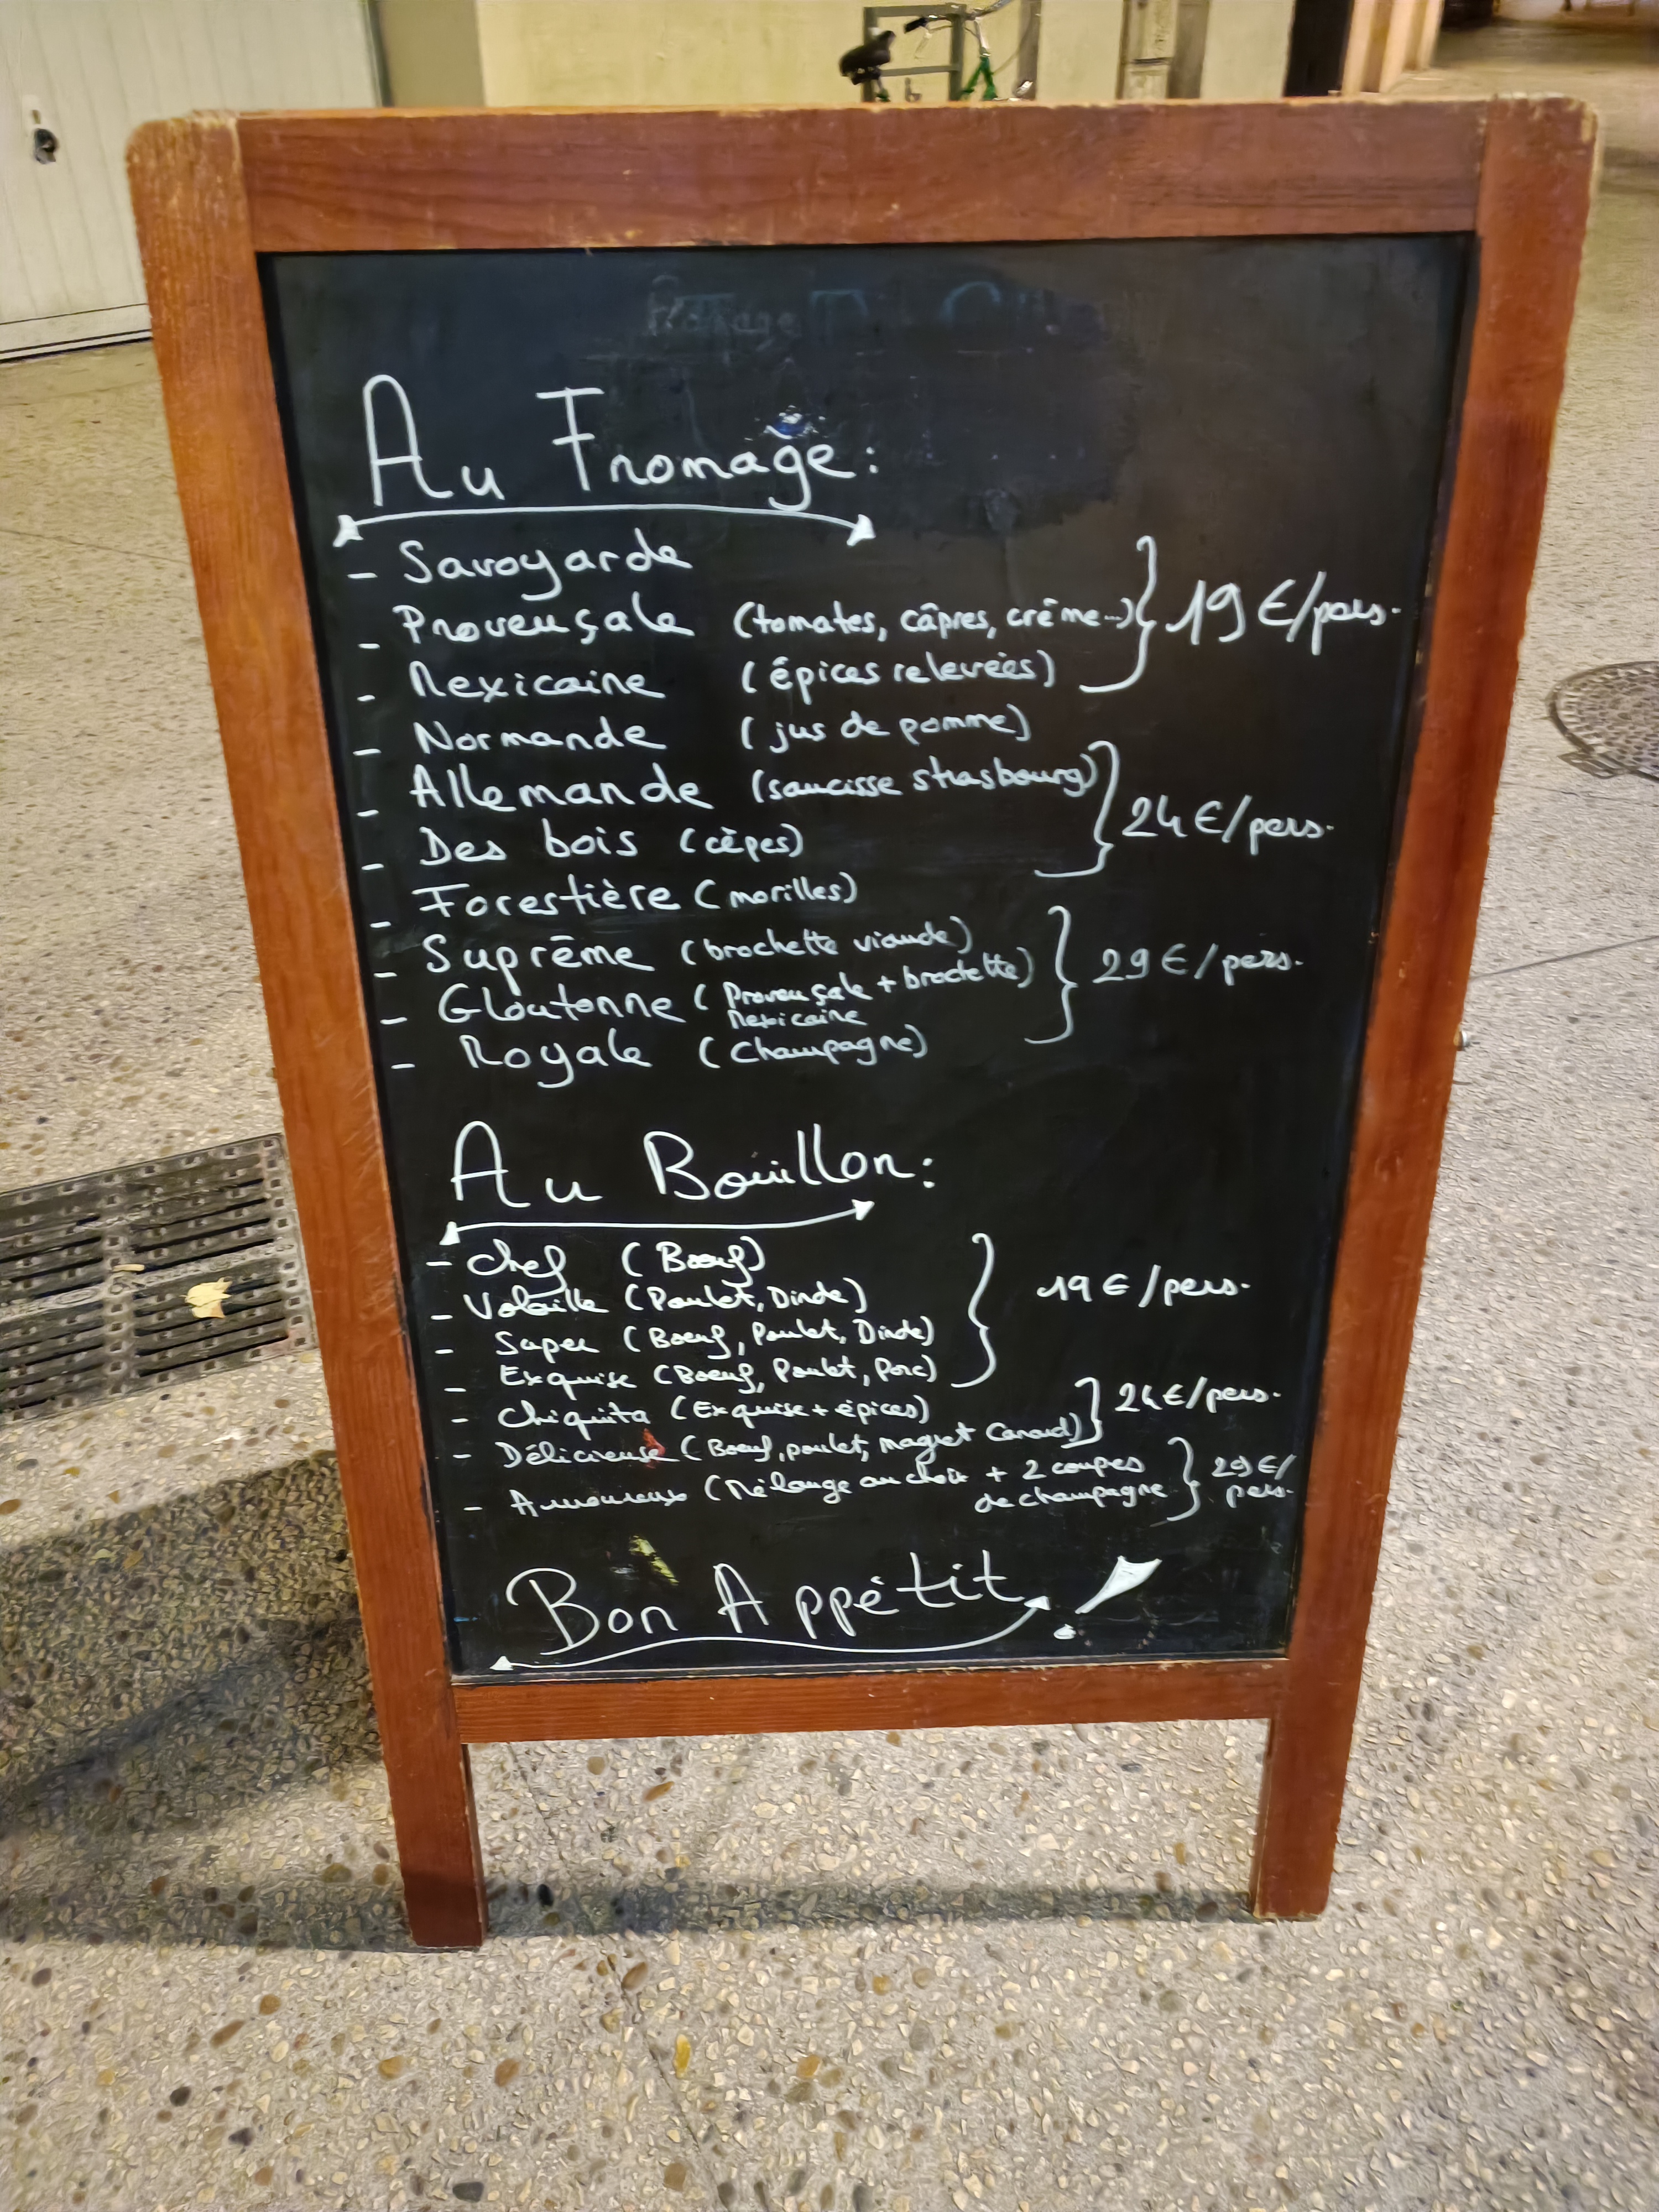 Au Fromage:
- Savoyarde
- Provençale (tomates, câpres, crème...) } 19€/pers.
- Mexicaine (épices relevées)
- Normande (jus de pomme)
- Allemande (saucisse strasbourg)
- Des bois (cèpes) } 24€/pers.
- Forestière (morilles)
- Suprême (brochette viande)
- Gloutonne (Provençale + brochette) } 29€/pers.
Mexicaine
- Royale (Champagne)
Au Bouillon:
- Chef (Boeuf)
- Volaille (Poulet, Dinde) } 19€/pers.
- Super (Boeuf, Poulet, Dinde)
- Exquise (Boeuf, Poulet, Porc)
- Chiquita (Exquise + épices) } 24€/pers.
- Délicieuse (Boeuf, poulet, magret Canard)
- Amoureux (Mélange au choix + 2 coupes } 29€/
de champagne pers.
Bon Appétit !